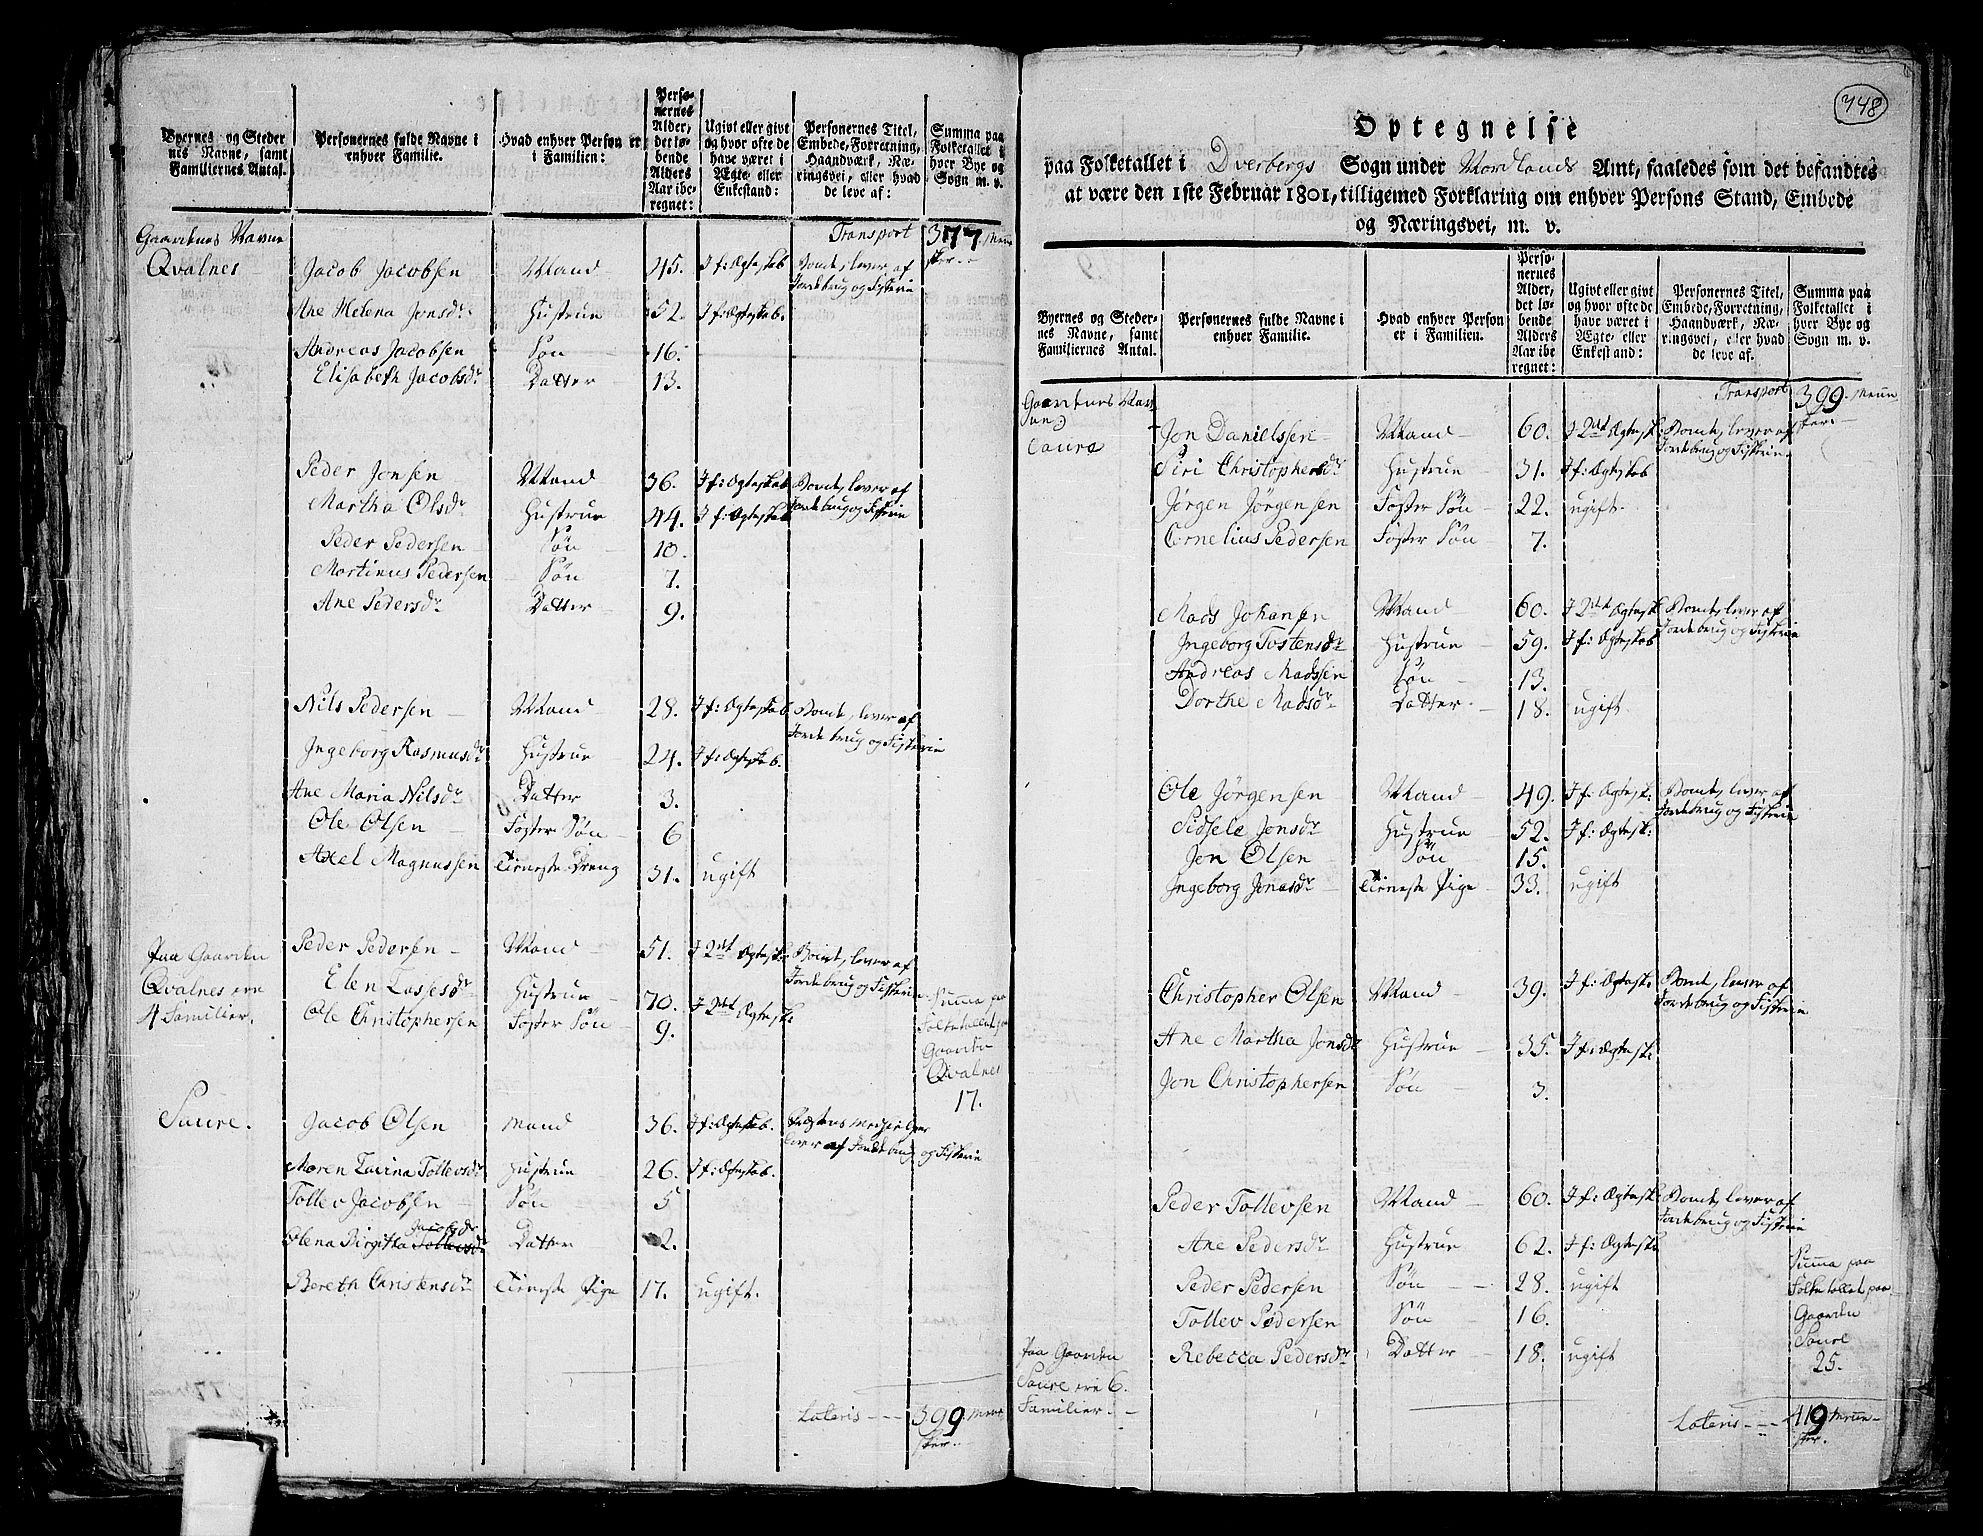 Byernes og Steder
nes Navne, samt
Familiernes Antal.
Personernes fulde Navne i
enhver Familie.
Hvad enhver Person er
i Familien:
Perso-
nernes
Alder,
det lø-
bende
Alders
Aar ibe
regnet:
Ugivt eller givt
og hvor ofte de
have været i
Ægte- eller
Enkestand:
Personernes Titel,
Embede, Forretning,
Haandværk, Næ-
ringsvei, eller hvad
de leve af:
Summa paa
Folketallet i
hver Bye og
Sogn m. v.
Gaardenes Navne Transport 377 Menne
sker.
Qvalnes Jacob Jacobsen Mand 45. I f: Ægteskab Bonde, lever af
Jordebrug og Fiskerie
Ane Helena Jonsdr Hustrue 52. I f: Ægteskab.
Andreas Jacobsen Søn 16.
Elisabeth Jacobsdr Datter 13.
Peder Jonsen Mand 36. I f: Ægteskab Bonde, lever af
Jordebrug og Fiskerie
Martha Olsdr Hustrue 44. I f: Ægteskab
Peder Pedersen Søn 10.
Martinus Pedersen Søn 7.
Ane Pedersdr Datter 9.
Nils Pedersen Mand 28. I f: Ægteskab Bonde, lever af
Jordebrug og Fiskerie
Ingeborg Rasmusdr Hustrue 24. I f: Ægteskab.
Ane Maria Nilsdr Datter 3.
Ole Olsen Foster Søn 6
Axel Magnussen Tieneste Dreng 31. ugift
Peder Pedersen Mand 51. I 2det Ægtesk: Bonde, lever af
Jordebrug og Fiskerie
Paa Gaarden
Qvalnes ere
4 Familier.
Elen Lassesdr Hustrue 70. I 2det Ægtesk:
Ole Christophersen Foster Søn 9.
Summa paa
Folketallet paa
Gaarden
Qvalnes
17.
Saure. Jacob Olsen Mand 36. I f: Ægteskab.
lever af Jordebrug og Fiskerie
Maren Lavina Tollevsdr Hustrue 26. I f: Ægteskab.
Tollev Jacobsen Søn 5
Jacobsdr
Olena Birgitta Tollevsdr Datter 2.
Bereth Christensdr Tieneste Pige 17. ugift.
Lateris 399. Menne
sker.
748
Optegnelse
paa Folketallet i Dverbergs Sogn under Nordlands Amt, saaledes som det befandtes
at være den 1ste Februar 1801, tilligemed Forklaring om enhver Persons Stand, Embede
og Næringsvei, m. v.
Byernes og Steder-
nes Navne, samt
Familiernes Antal.
Personernes fulde Navne i
enhver Familie.
Hvad enhver Person
er i Familien.
Perso-
nernes
Alder,
det lø-
bende
Alders
Aar ibe
regnet:
Ugivt eller givt
og hvor ofte de
have været i
Ægte- eller
Enkestand:
Personernes Titel,
Embede, Forretning,
Haandværk, Næ-
ringsvei, eller hvad
de leve af.
Summa paa
Folketallet i
hver Bye og
Sogn m. v.
Transport 399. Menne
sker.
Gaardenes Nav
ne
Saure
Jon Danielssen Mand 60. I 2det Ægtesk: Bonde, lever af
Jordebrug og Fiskerie.
Siri Christophersdr Hustrue 31. I f: Ægteskab
Jørgen Jørgensen Foster Søn 22. ugift.
Cornelius Pedersen Foster Søn 7.
Mads Johansen Mand 60. I 2det Ægtesk: Bonde, lever af
Jordebrug og Fiskerie
Ingeborg Tostensdr Hustrue 59. I f: Ægteskab
Andreas Madssen Søn 13.
Dorthe Madsdr Datter 18. ugift
Ole Jørgensen Mand 49. I f: Ægtesk: Bonde, lever af
Jordebrug og Fiskerie
Sidsele Jonsdr Hustrue 52. I f: Ægtesk:
Jon Olsen Søn 15.
Ingeborg Jonasdr Tieneste Pige 33. ugift
Christopher Olsen Mand 39. I f: Ægtesk: Bonde, lever af
Jordebrug og Fiskerie
Ane Martha Jonsdr Hustrue 35. I f: Ægtesk:
Jon Christophersen Søn 3.
Peder Tollevsen Mand 60. I f: Ægtesk: Bonde, lever af
Jordebrug og Fiskerie
Ane Pedersdr Hustrue 62. I f: Ægtesk.
Peder Pedersen Søn 28. ugift
Tollev Pedersen Søn 16.
Rebecca Pedersdr Datter 18. ugift
Paa Gaarden
Saure ere 6.
Familier.
Summa paa
Folketallet paa
Gaarden
Saure
25.
Lateris 419 Menne-
sker.